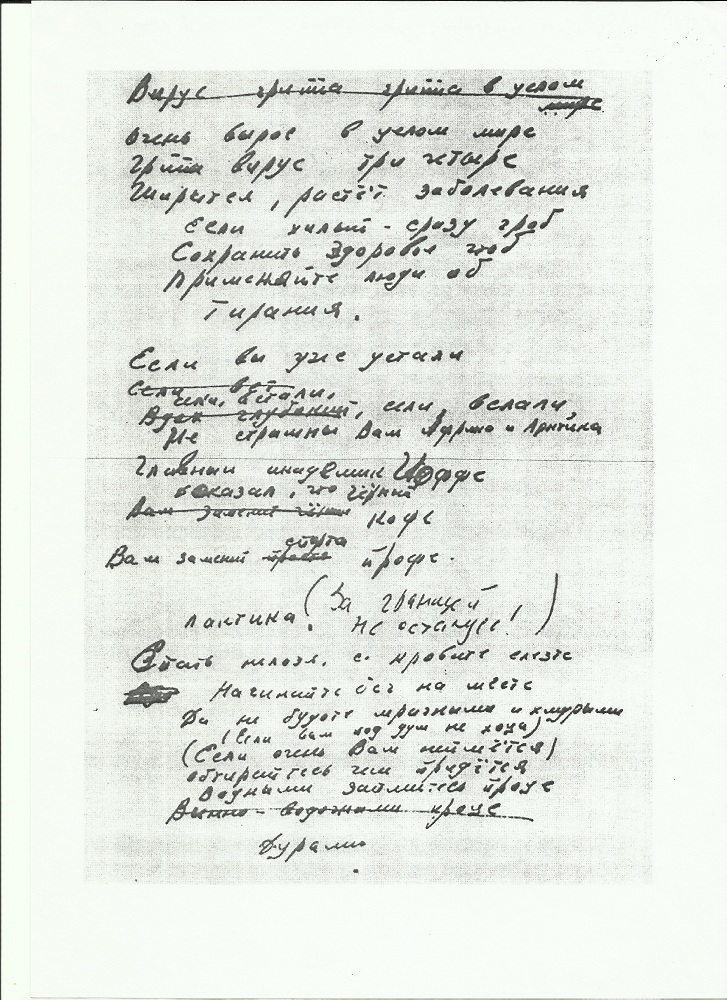 Вирус гриппа гриппа в целом
мире
Очень вырос в целом мире
Гриппа вирус три четыре
Ширится, растёт заболевания
Если хилый - сразу гроб
Сохранить здоровье чтоб
Применяйте люди об
Тирания.
Если вы уже устали
Если
сели, встали,
Вдох глубокий, если, встали
Не страшны Вам Африка и Арктика
Главный академик Иоффе
Доказал, что чёрный
Вам заменит чёрный кофе
спорта
Вам заменит просто профе.
лактика. (За границей,
не останусь!)
Спать нельзя. с кровати слезте
Начинайте бег на месте
Да не будьте мрачными и хмурыми
(Если вам под душ не
(Если очень Вам неймётся)
обтирайтесь чем придётся
Водными займитесь проце
Винно-водочными проце
Дурами